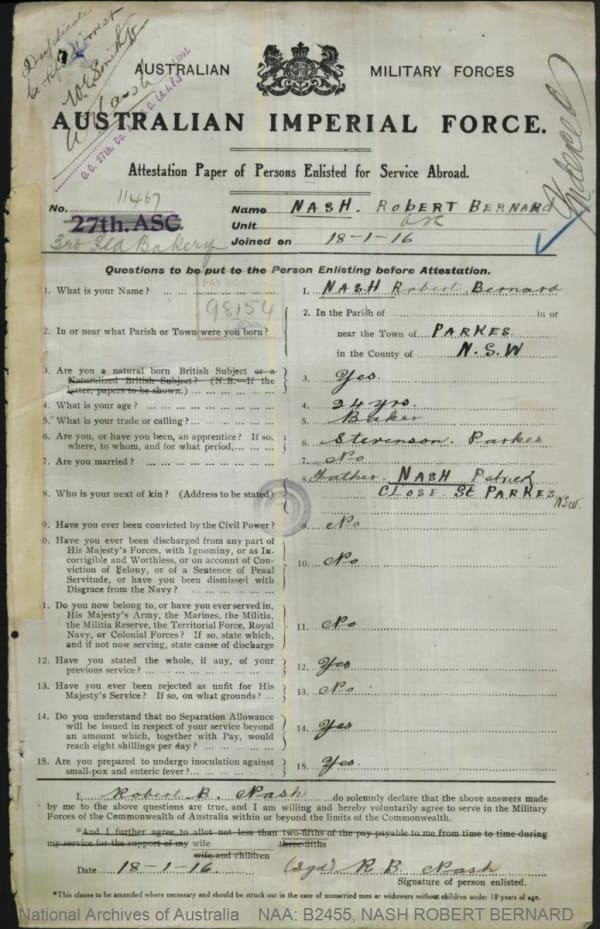 Duplicate
W. E. Smith
AUSTRALIAN MILITARY FORCES
AUSTRALIAN IMPERIAL FORCE.
Attestation Paper of Persons Enlisted for Service Abroad.
11467
No. 27th. ASC. Name NASH. ROBERT BERNARD
Unit
3rd Fld Bakery Joined on 18-1-16
Questions to be put to the Person Enlisting before Attestation.
98154
1. What is your Name? 1. NASH Robert Bernard
2. In or near what Parish or Town were you born? 2. In the Parish of in or
near the Town of PARKES
in the County of N.S.W
3. Are you a natural born British Subject or a
Naturalized British Subject? (N.B.—If the
latter, papers to be shown.) 3. Yes
4. What is your age? 4. 24 yrs.
5. What is your trade or calling? 5. Baker
6. Are you, or have you been, an apprentice? If so,
where, to whom, and for what period, 6. Stevenson. Parkes
7. Are you married? 7. No
8. Who is your next of kin? (Address to be stated) 8. Father NASH Patrick
CLOSE. St PARKES NSW.
9. Have you ever been convicted by the Civil Power? 9. No
0. Have you ever been discharged from any part of
His Majesty's Forces, with Ignominy, or as In-
corrigible and Worthless, or on account of Con-
viction of Felony, or of a Sentence of Penal
Servitude, or have you been dismissed with
Disgrace from the Navy? 10. No
1. Do you now belong to, or have you ever served in,
His Majesty's Army, the Marines, the Militia,
the Militia Reserve, the Territorial Force, Royal
Navy, or Colonial Forces? If so, state which,
and if not now serving, state cause of discharge 11. No
12. Have you stated the whole, if any, of your
previous service? 12. Yes
13. Have you ever been rejected as unfit for His
Majesty's Service? If so, on what grounds? 13. No
14. Do you understand that no Separation Allowance
will be issued in respect of your service beyond
an amount which, together with Pay, would
reach eight shillings per day? 14. Yes
15. Are you prepared to undergo inoculation against
small-pox and enteric fever? 15. Yes.
I, Robert B. Nash do solemnly declare that the above answers made
by me to the above questions are true, and I am willing and hereby voluntarily agree to serve in the Military
Forces of the Commonwealth of Australia within or beyond the limits of the Commonwealth.
*And I further agree to allot not less than two-fifths of the pay payable to me from time to time during
three-fifths
my service for the support of my wife
wife and children
Date 18-1-16. (sgd) R B Nash
Signature of person enlisted.
*This clause to be amended where necessary and should be struck out in the case of unmarried men or widowers without children under 18 years of age.
National Archives of Australia NAA: B2455, NASH ROBERT BERNARD